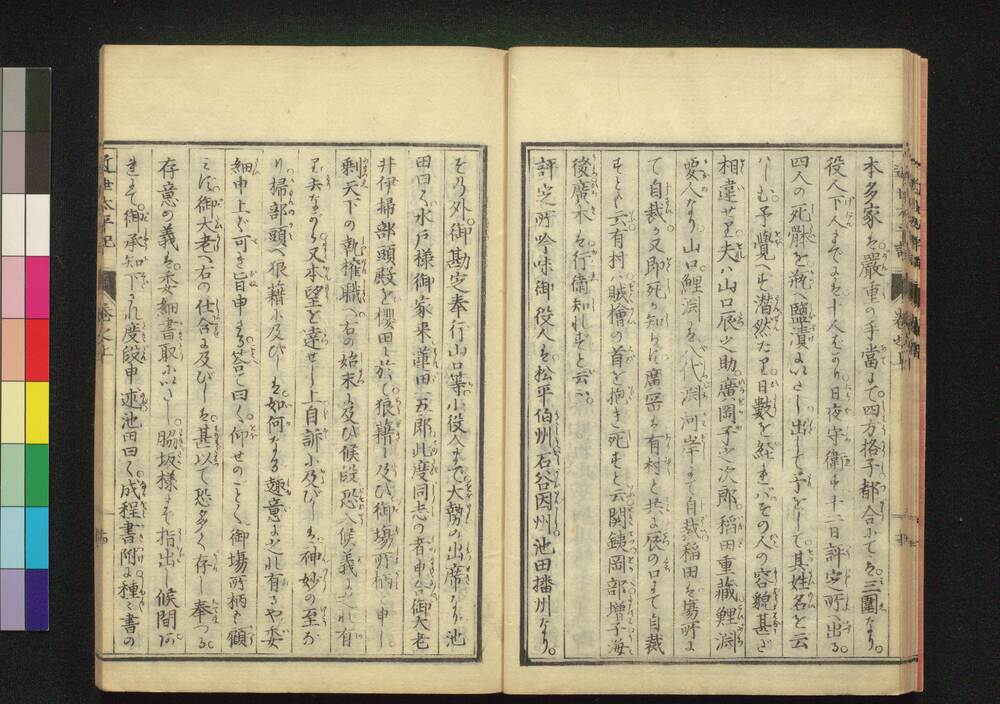 本多家は嚴重の手當まで四方格子都合にては三圍なり。
役人下人までには三十人ばかり日夜守衛す十二日評定所へ出る
四人の死骸を瓶へ鹽漬にいたし出して予をして其姓名を云
はしむ予覺へも潜然たり日數を經ればその人の容貌甚だ
相違せり夫は山口辰之助廣岡子之次郎稲田重藏鯉淵
要人なり山口鯉淵は八代洲河岸にて自裁稲田は場所に
て自裁か又即死か知らず廣岡は有村と共に辰の口にて自裁
すと云有村は賊檜の首を抱き死すと云関銕岡部増子海
後廣木は行衛知れずと云〻
評定所吟味御役人は松平伯州石谷因州池田播州なり。
その外御勘定奉行山口等小役人まで大勢の出席なり池
田曰く水戸様御家来蓮田一五郎此度同志の者申合御大老
井伊掃部頭殿を櫻田に於て狼藉に及び御場所柄と申し
剰天下の執権職へ右の始末に及び候段恐入候義に之れ有
り去ながら又本望を達せし上自訴に及びしは神妙の至な
り掃部頭へ狼藉に及びしは如何なる趣意に之れ有るや委
細申上ぐ可き旨申さる答て曰く仰せのごとく御場所柄も顧
みず御大老へ右の仕合に及びしは甚以て恐多く存し奉つる
存意の義は委細書取にいたし脇坂様まで指出し候間
まで御承知下され度段申述池田曰く成程書附に種〻書の
近世太平記